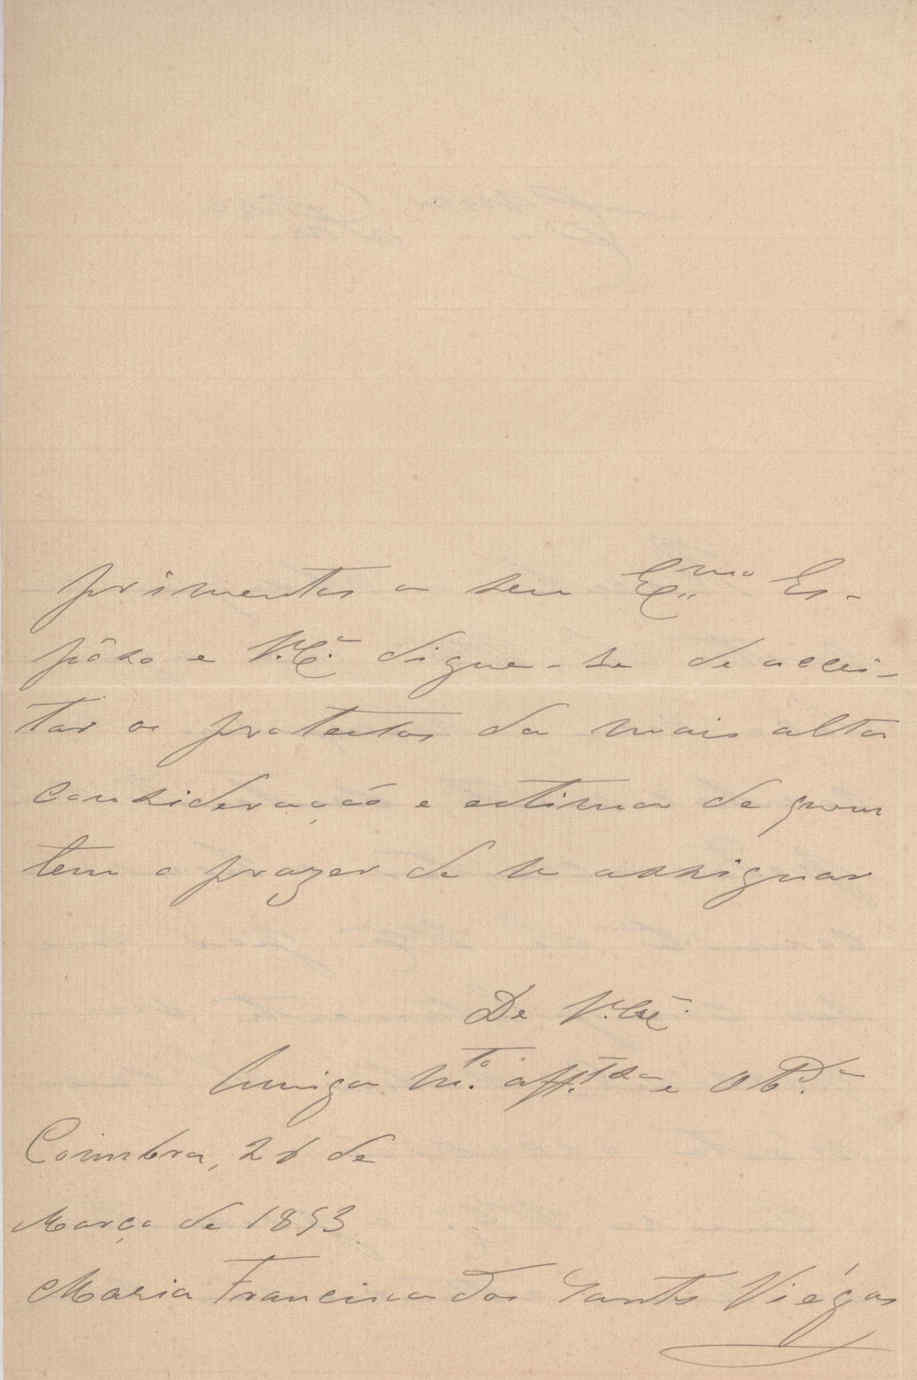 primentos a seu Ex.mo Es-
pôso e V. Ex.ª digne-se de accei-
tar os protestos da mais alta
consideração e estima de quem
tem o prazer de se assignar
De V. Ex.ª
Amiga M.to aff.tda e Obg.da
Coimbra, 26 de
Março de 1893
Maria Francisca dos Santos Viégas